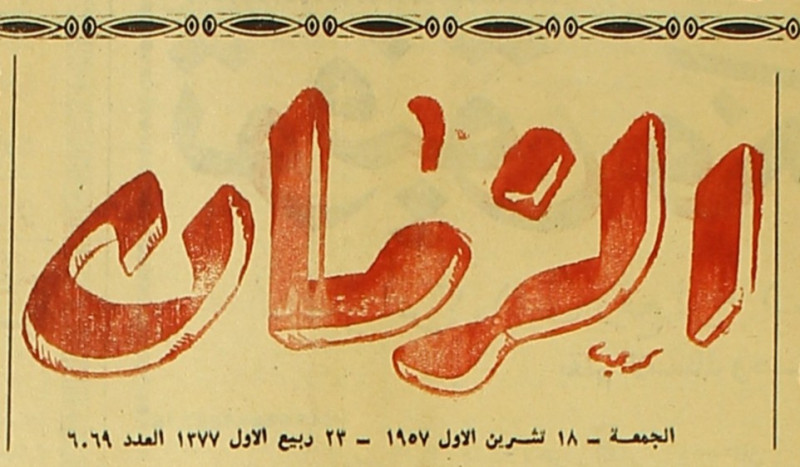 الزمان
الجمعة - ١٨ تشرين الاول ١٩٥٧ - ٢٣ ربيع الاول ١٣٧٧ العدد ٦٠٦٩